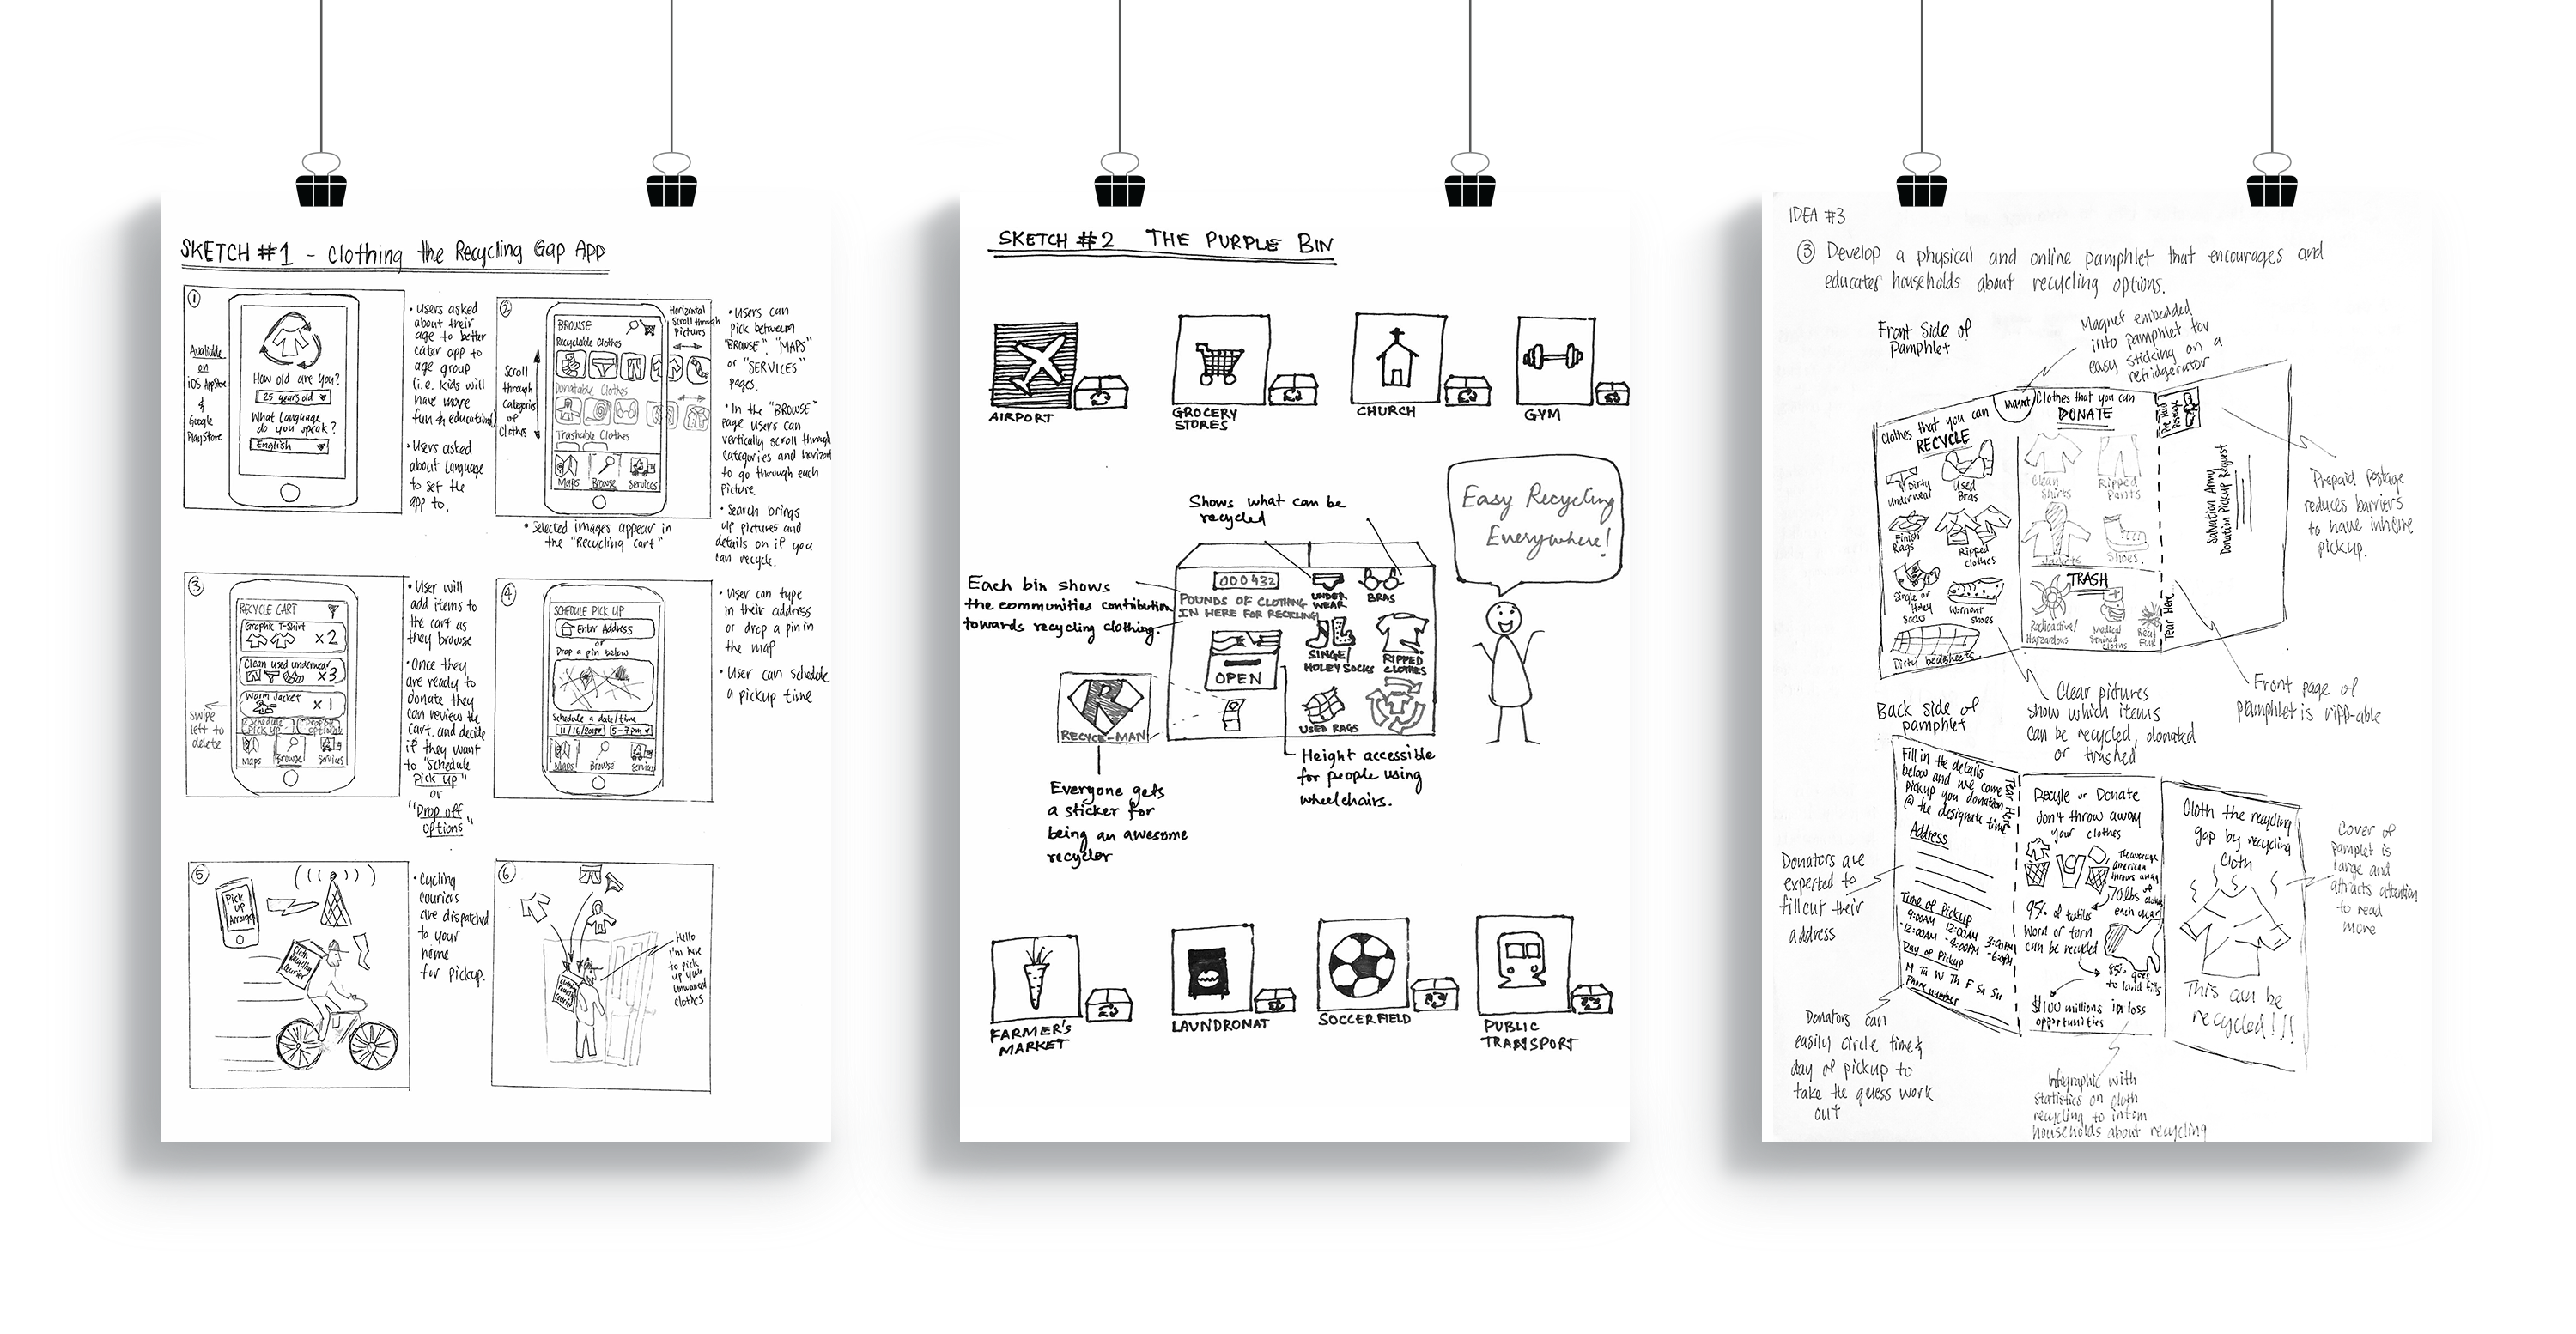 SKETCH #1 - Clothing the Recycling Gap APP
①
Available
on
iOS AppStore
&
Google
PlayStore
How old are you?
25 years old
What Language
do you speak?
English
• Users asked
about their
age to better
cater app to
age group
(i.e. kids will
have more
fun & education)
• Users asked
about Language
to set the
app to.
②
Scroll
through
Categories
of
Clothes
BROWSE
Recyclable Clothes
Donatable Clothes
Trashable Clothes
Maps Browse Services
Horizontal
Scroll through
Pictures
• Selected images appear in
the "Recycling cart"
• Users can
pick between
"BROWSE", "MAPS"
or "SERVICES"
pages.
• In the "BROWSE"
page users can
vertically scroll through
categories and horizont
to go through each
picture.
• Search brings
up pictures and
details on if you
can recycle.
③
RECYCLE CART
Graphic T-Shirt
x2
Clean used underwear
x3
Warm Jacket
x1
Schedule
pick up
Drop off
options
Maps Browse Services
swipe
left to
delete
• User will
add items to
the cart as
they browse
• Once they
are ready to
donate they
can review the
cart, and decide
if they want
to "Schedule
Pick up"
or
"Drop off
options"
④
SCHEDULE PICK UP
Enter Address
or
Drop a pin below
Schedule a date/time
5-7pm
Maps Browse Services
• User can type
in their address
or drop a pin in
the map
• User can schedule
a pickup time
⑤
Pick
up
Arranged
Cloth
Recycling
Courier
• Cycling
couriers
are dispatched
to your
home
for pickup.
⑥
Hello
I'm here
to pick
up your
unwanted
clothes
SKETCH #2 THE PURPLE BIN
AIRPORT
GROCERY
STORES
CHURCH
GYM
Shows what can be
recycled
Easy Recycling
Everywhere!
Each bin shows
the communities contribution
towards recycling clothing.
000432
POUNDS OF CLOTHING
IN HERE FOR RECKLING
OPEN
UNDER
WEAR
BRAS
SINGE/
HOLEY SOCKS
RIPPED
CLOTHES
USED RAGS
R
RECYCE-MAN
Everyone gets
a sticker for
being an awesome
recycler
Height accessible
for people using
wheelchairs.
FARMER'S
MARKET
LAUNDROMAT
SOCCER FIELD
PUBLIC
TRANSPORT
IDEA #3
③ Develop a physical and online pamphlet that encourages and
educates households about recycling options.
Front Side of
Pamphlet
Magnet embedded
into pamphlet for
easy sticking on a
refridgerator
Magnet
Clothes that you can
RECYCLE
Dirty
Underwear
Used
Bras
Rags
Ripped
clothes
Single or
Holey
Socks
Wornout
shoes
Dirty bedsheets
Clothes that you can
DONATE
Clean
Shirts
Ripped
Pants
Jackets
Shoes
TRASH
Radioactive/
Harzardous
Medical
Stained
Clothes
Real
Fur
Tear Here
Salvation Army
Donation Pickup Request
Prepaid Postage
reduces barriers
to have inhome
pickup.
Clear pictures
show which items
can be recycled, donated
or trashed
Front page of
pamphlet is ripp-able
Back side of
pamphlet
Fill in the details
below and we come
pickup you donation
@ the designate time
Address
Time of Pickup
Day of Pickup
M Tu W Th F Sa Su
Phone number
Tear Here
Recycle or Donate
don't throw away
your clothes
The average
american
throws away
70lbs of
clothes
each year
95% of textiles
worn or torn
can be recycled
85% goes
to landfills
$100 millions in loss
opportunities
Cloth the recycling
gap by recycling
cloth
This can be
recycled!!!
Cover of
pamplet is
large and
attracts attention
to read
more
Donators are
expected to
fillout their
address
Donators can
easily circle time &
day of pickup to
take the guess work
out
Infographic with
statistics on cloth
recycling to inform
households about recycling